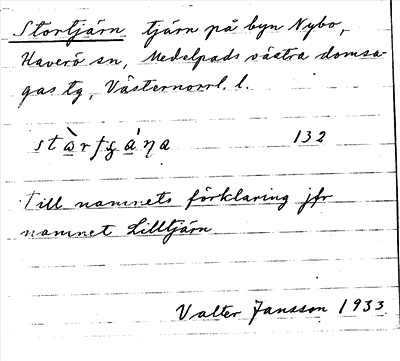 Stortjärn tjärn på byn Nybo,
Haverö sn, Medelpads västra domsa-
gas tg, Västernorrl. l.
132
Till namnets förklaring jfr
namnet Lilltjärn
Valter Jansson 1933